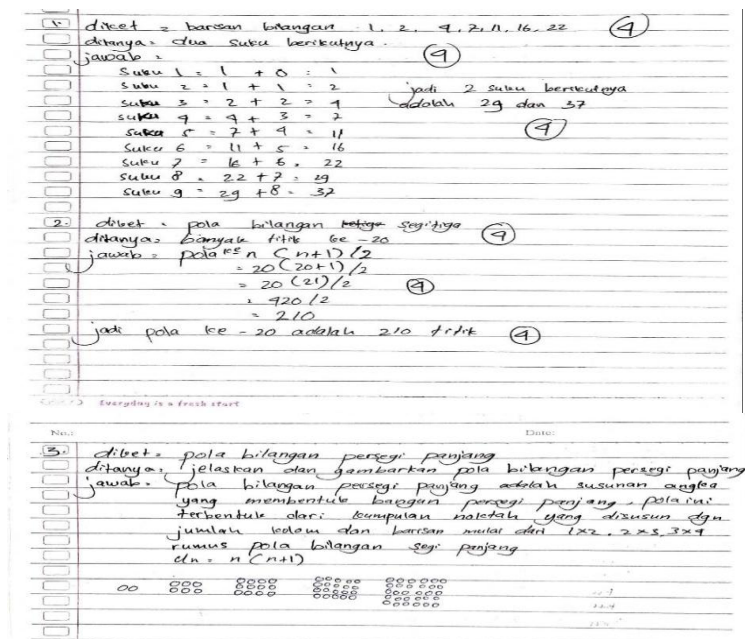 1. diket = barisan bilangan 1, 2, 4, 7, 11, 16, 22 (4)
ditanya = dua suku berikutnya.
jawab = (4)
suku 1 = 1 + 0 = 1
suku 2 = 1 + 1 = 2
suku 3 = 2 + 2 = 4
suku 4 = 4 + 3 = 7
suku 5 = 7 + 4 = 11
suku 6 = 11 + 5 = 16
suku 7 = 16 + 6 = 22
suku 8 = 22 + 7 = 29
suku 9 = 29 + 8 = 37
jadi 2 suku berikutnya
adalah 29 dan 37
(4)
2. diket = pola bilangan ketiga segitiga
ditanya = banyak titik ke-20 (4)
jawab = pola ke n (n+1)/2
= 20(20+1)/2
= 20(21)/2 (4)
= 420/2
= 210
jadi pola ke-20 adalah 210 titik (4)
Everyday is a fresh start
No.: Date:
3. diket = pola bilangan persegi panjang
ditanya = jelaskan dan gambarkan pola bilangan persegi panjang
jawab = pola bilangan persegi panjang adalah susunan angka
yang membentuk bangun persegi panjang, pola ini
terbentuk dari kumpulan noktah yang disusun dgn
jumlah kolom dan barisan mulai dari 1x2, 2x3, 3x4
rumus pola bilangan segi panjang
Un = n(n+1)